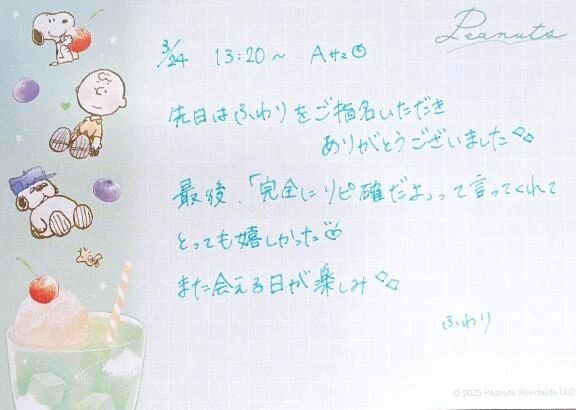 Peanuts
3/24 13:20～ Aサマ
先日はふわりをご指名いただき
ありがとうございました
最後、「完全にリピ確だよ」って言ってくれて
とっても嬉しかった
また会える日が楽しみ
ふわり
© 2025 Peanuts Worldwide LLC